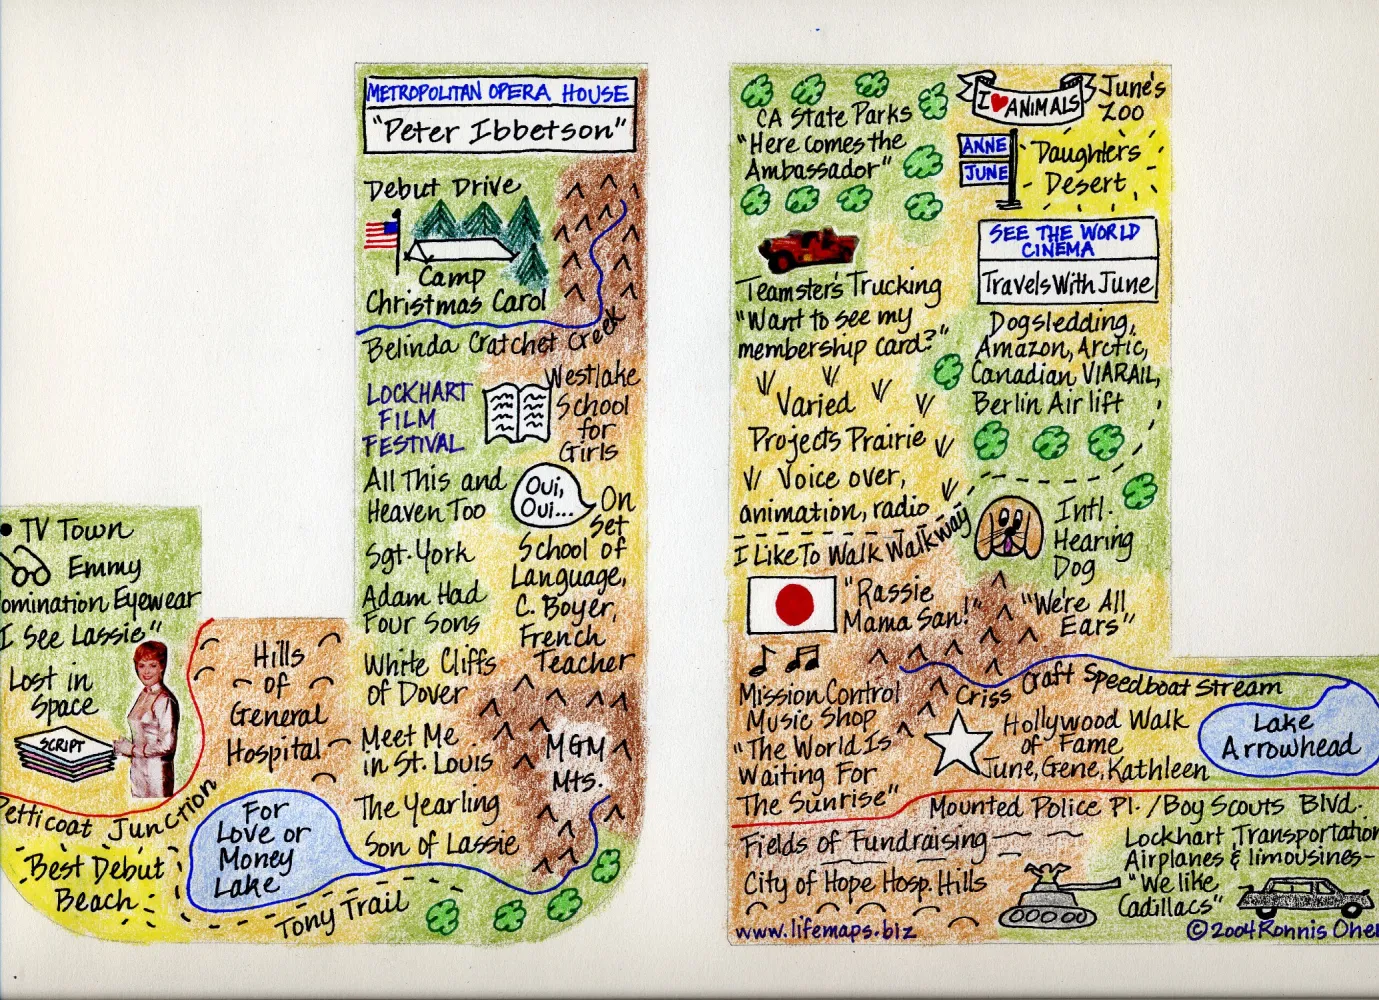 METROPOLITAN OPERA HOUSE
"Peter Ibbetson"
Debut Drive
Camp
Christmas Carol
Belinda Cratchet Creek
LOCKHART
FILM
FESTIVAL
Westlake
School
for
Girls
All This and
Heaven Too
Oui,
Oui...
On
Set
School of
Language,
C. Boyer,
French
Teacher
Sgt. York
Adam Had
Four Sons
White Cliffs
of Dover
Meet Me
in St. Louis
MGM
Mts.
The Yearling
Son of Lassie
• TV Town
Emmy
omination Eyewear
I See Lassie"
Lost in
Space
SCRIPT
Hills
of
General
Hospital
Petticoat Junction
Best Debut
Beach
For
Love or
Money
Lake
Tony Trail
CA State Parks
"Here Comes the
Ambassador"
I ♥ ANIMALS
June's
Zoo
ANNE
JUNE
Daughters
Desert
SEE THE WORLD
CINEMA
Travels With June
Teamster's Trucking
"Want to see my
membership card?"
Dogsledding,
Amazon, Arctic,
Canadian VIARAIL,
Berlin Airlift
Varied
Projects Prairie
Voice over,
animation, radio
I Like To Walk Walkway
Intl.
Hearing
Dog
"We're All
Ears"
"Rassie
Mama San!"
Mission Control
Music Shop
"The World Is
Waiting For
The Sunrise"
Criss Craft Speedboat Stream
Lake
Arrowhead
Hollywood Walk
of Fame
June, Gene, Kathleen
Mounted Police Pl. / Boy Scouts Blvd.
Fields of Fundraising
City of Hope Hosp. Hills
Lockhart Transportation
Airplanes & limousines-
"We like
Cadillacs"
www.lifemaps.biz
©2004 Ronnis Oher